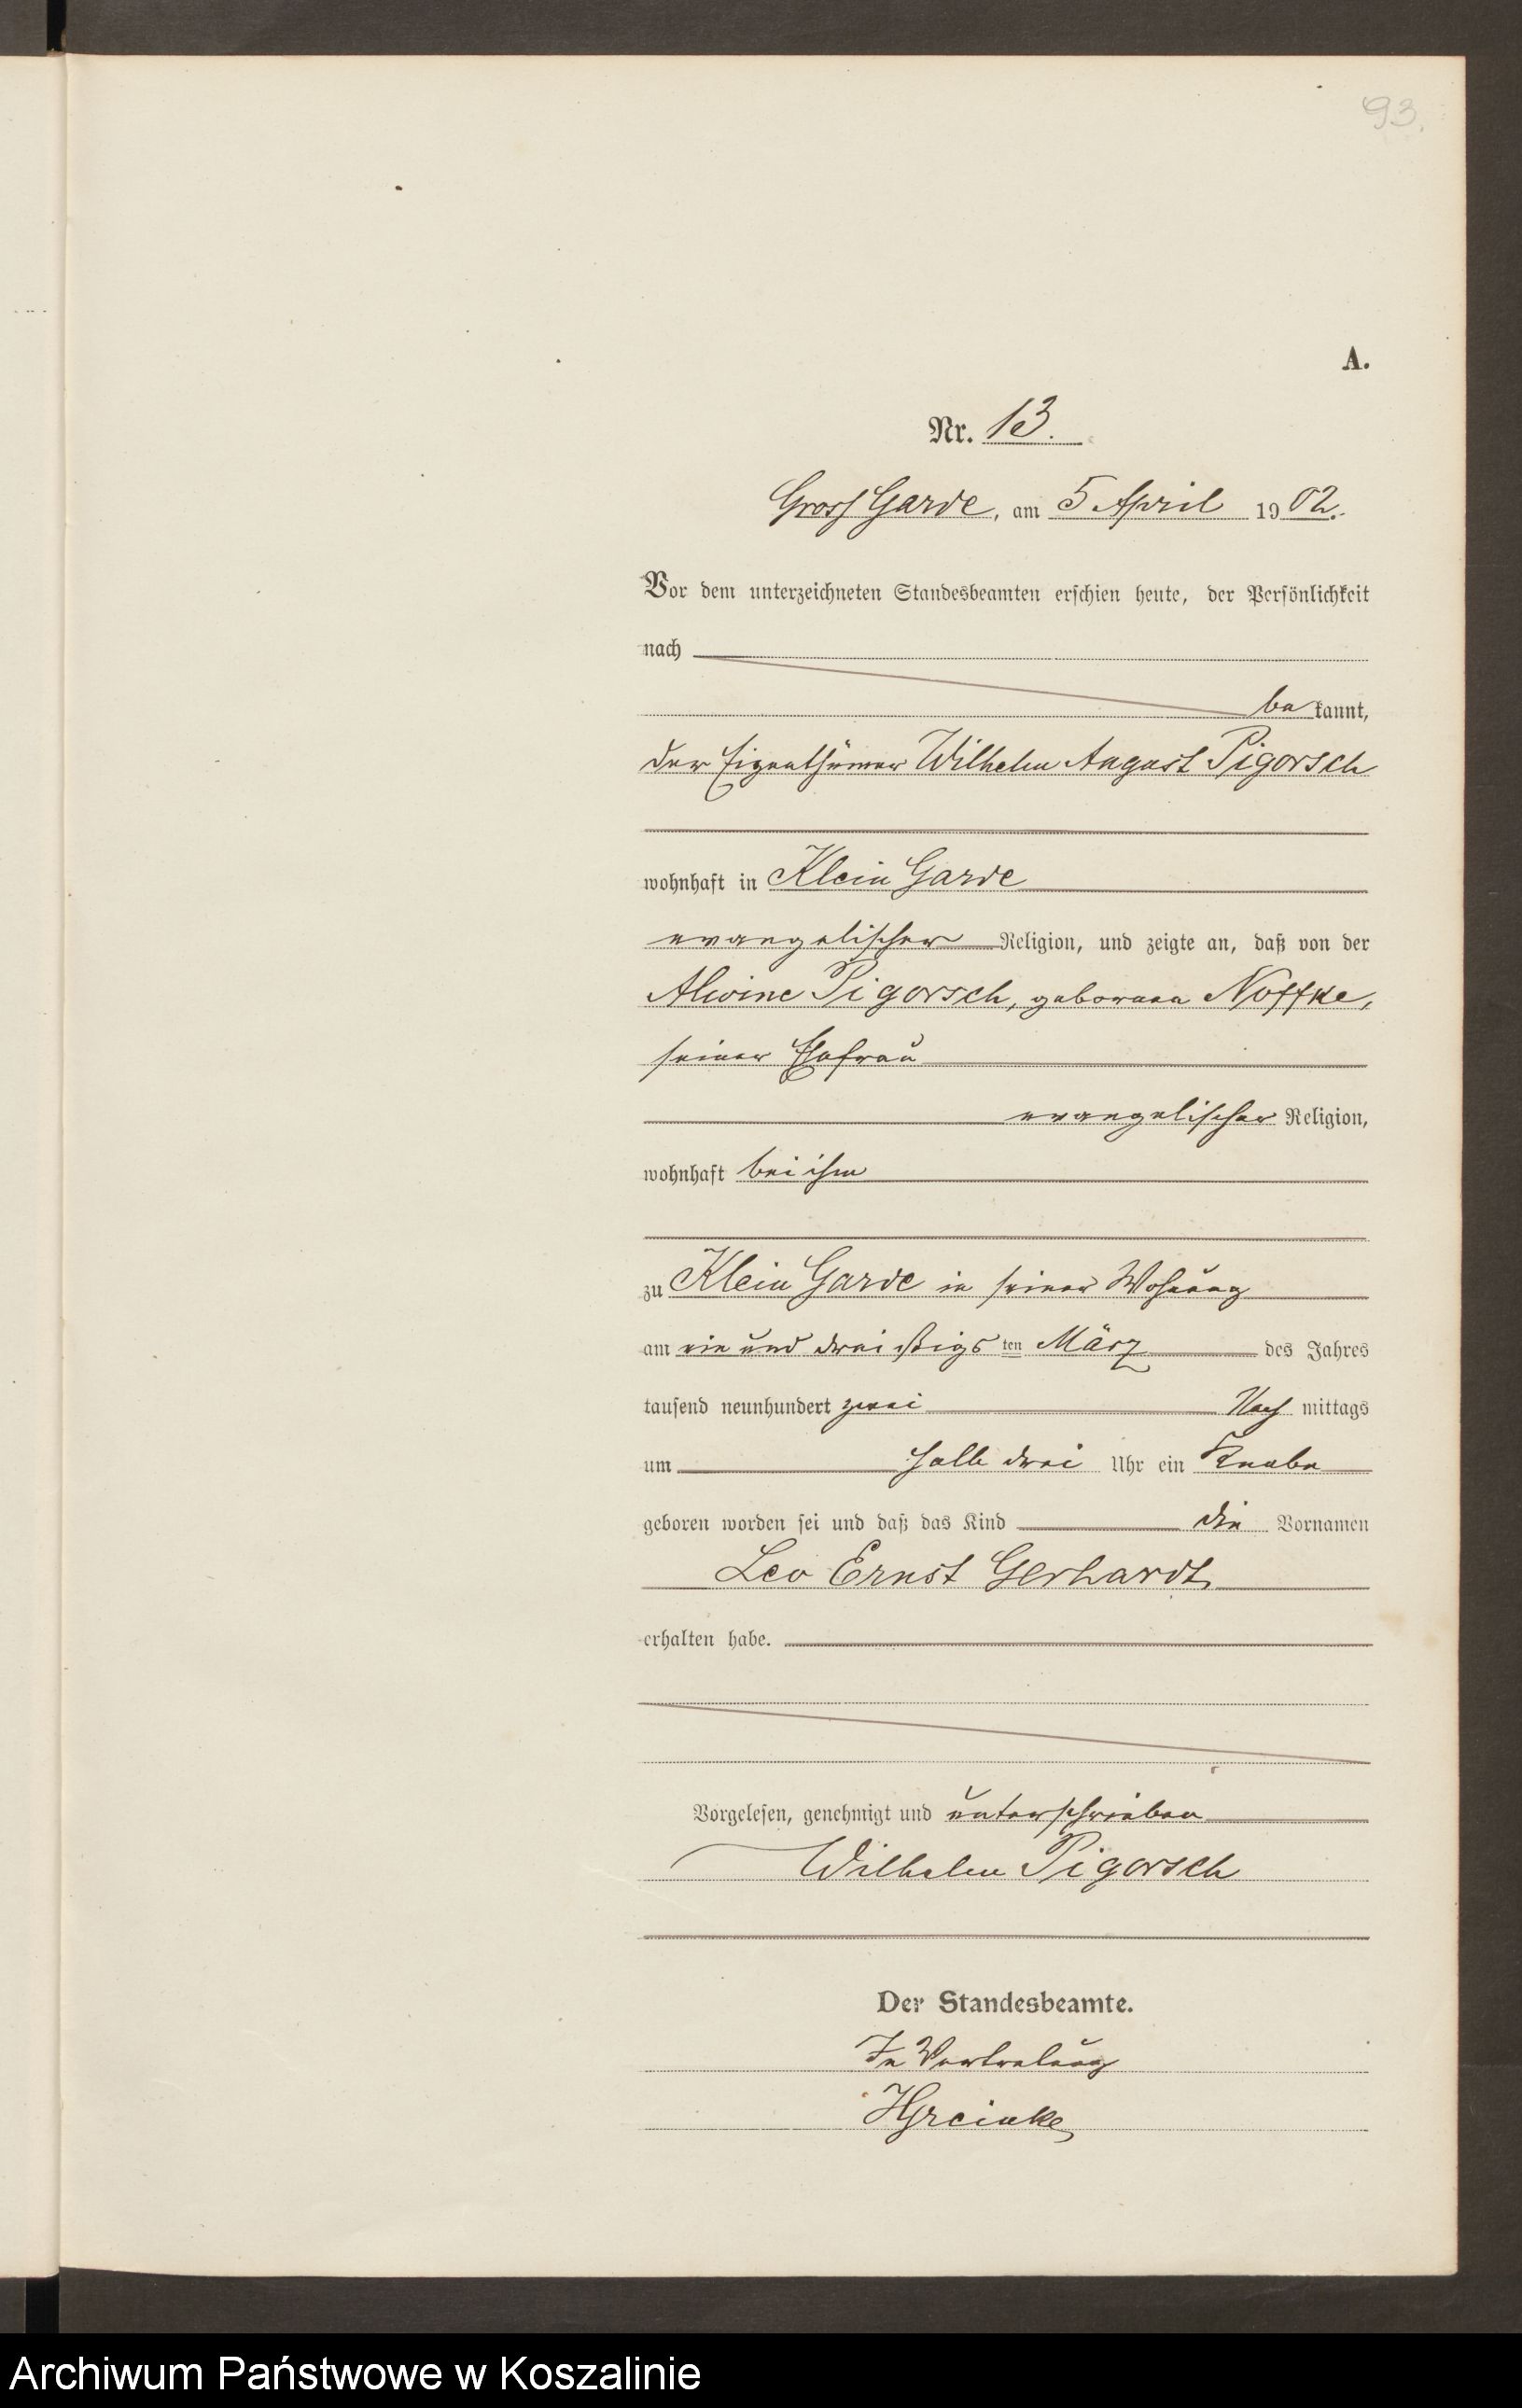 93.
A.
Nr. 13.
Gross Garde, am 5 April 1902.
Vor dem unterzeichneten Standesbeamten erschien heute, der Persönlichkeit
nach
bekannt,
der Eigenthümer Wilhelm August Pigorsch
wohnhaft in Klein Garde
evangelischer Religion, und zeigte an, daß von der
Alwine Pigorsch, geborenen Noffke,
seiner Ehefrau
evangelischer Religion,
wohnhaft bei ihm
zu Klein Garde in seiner Wohnung
am ein und dreißigsten März des Jahres
tausend neunhundert zwei Nachmittags
um halb drei Uhr ein Knabe
geboren worden sei und daß das Kind die Vornamen
Leo Ernst Gerhardt
erhalten habe.
Vorgelesen, genehmigt und unterschrieben
Wilhelm Pigorsch
Der Standesbeamte.
In Vertretung
Archiwum Państwowe w Koszalinie